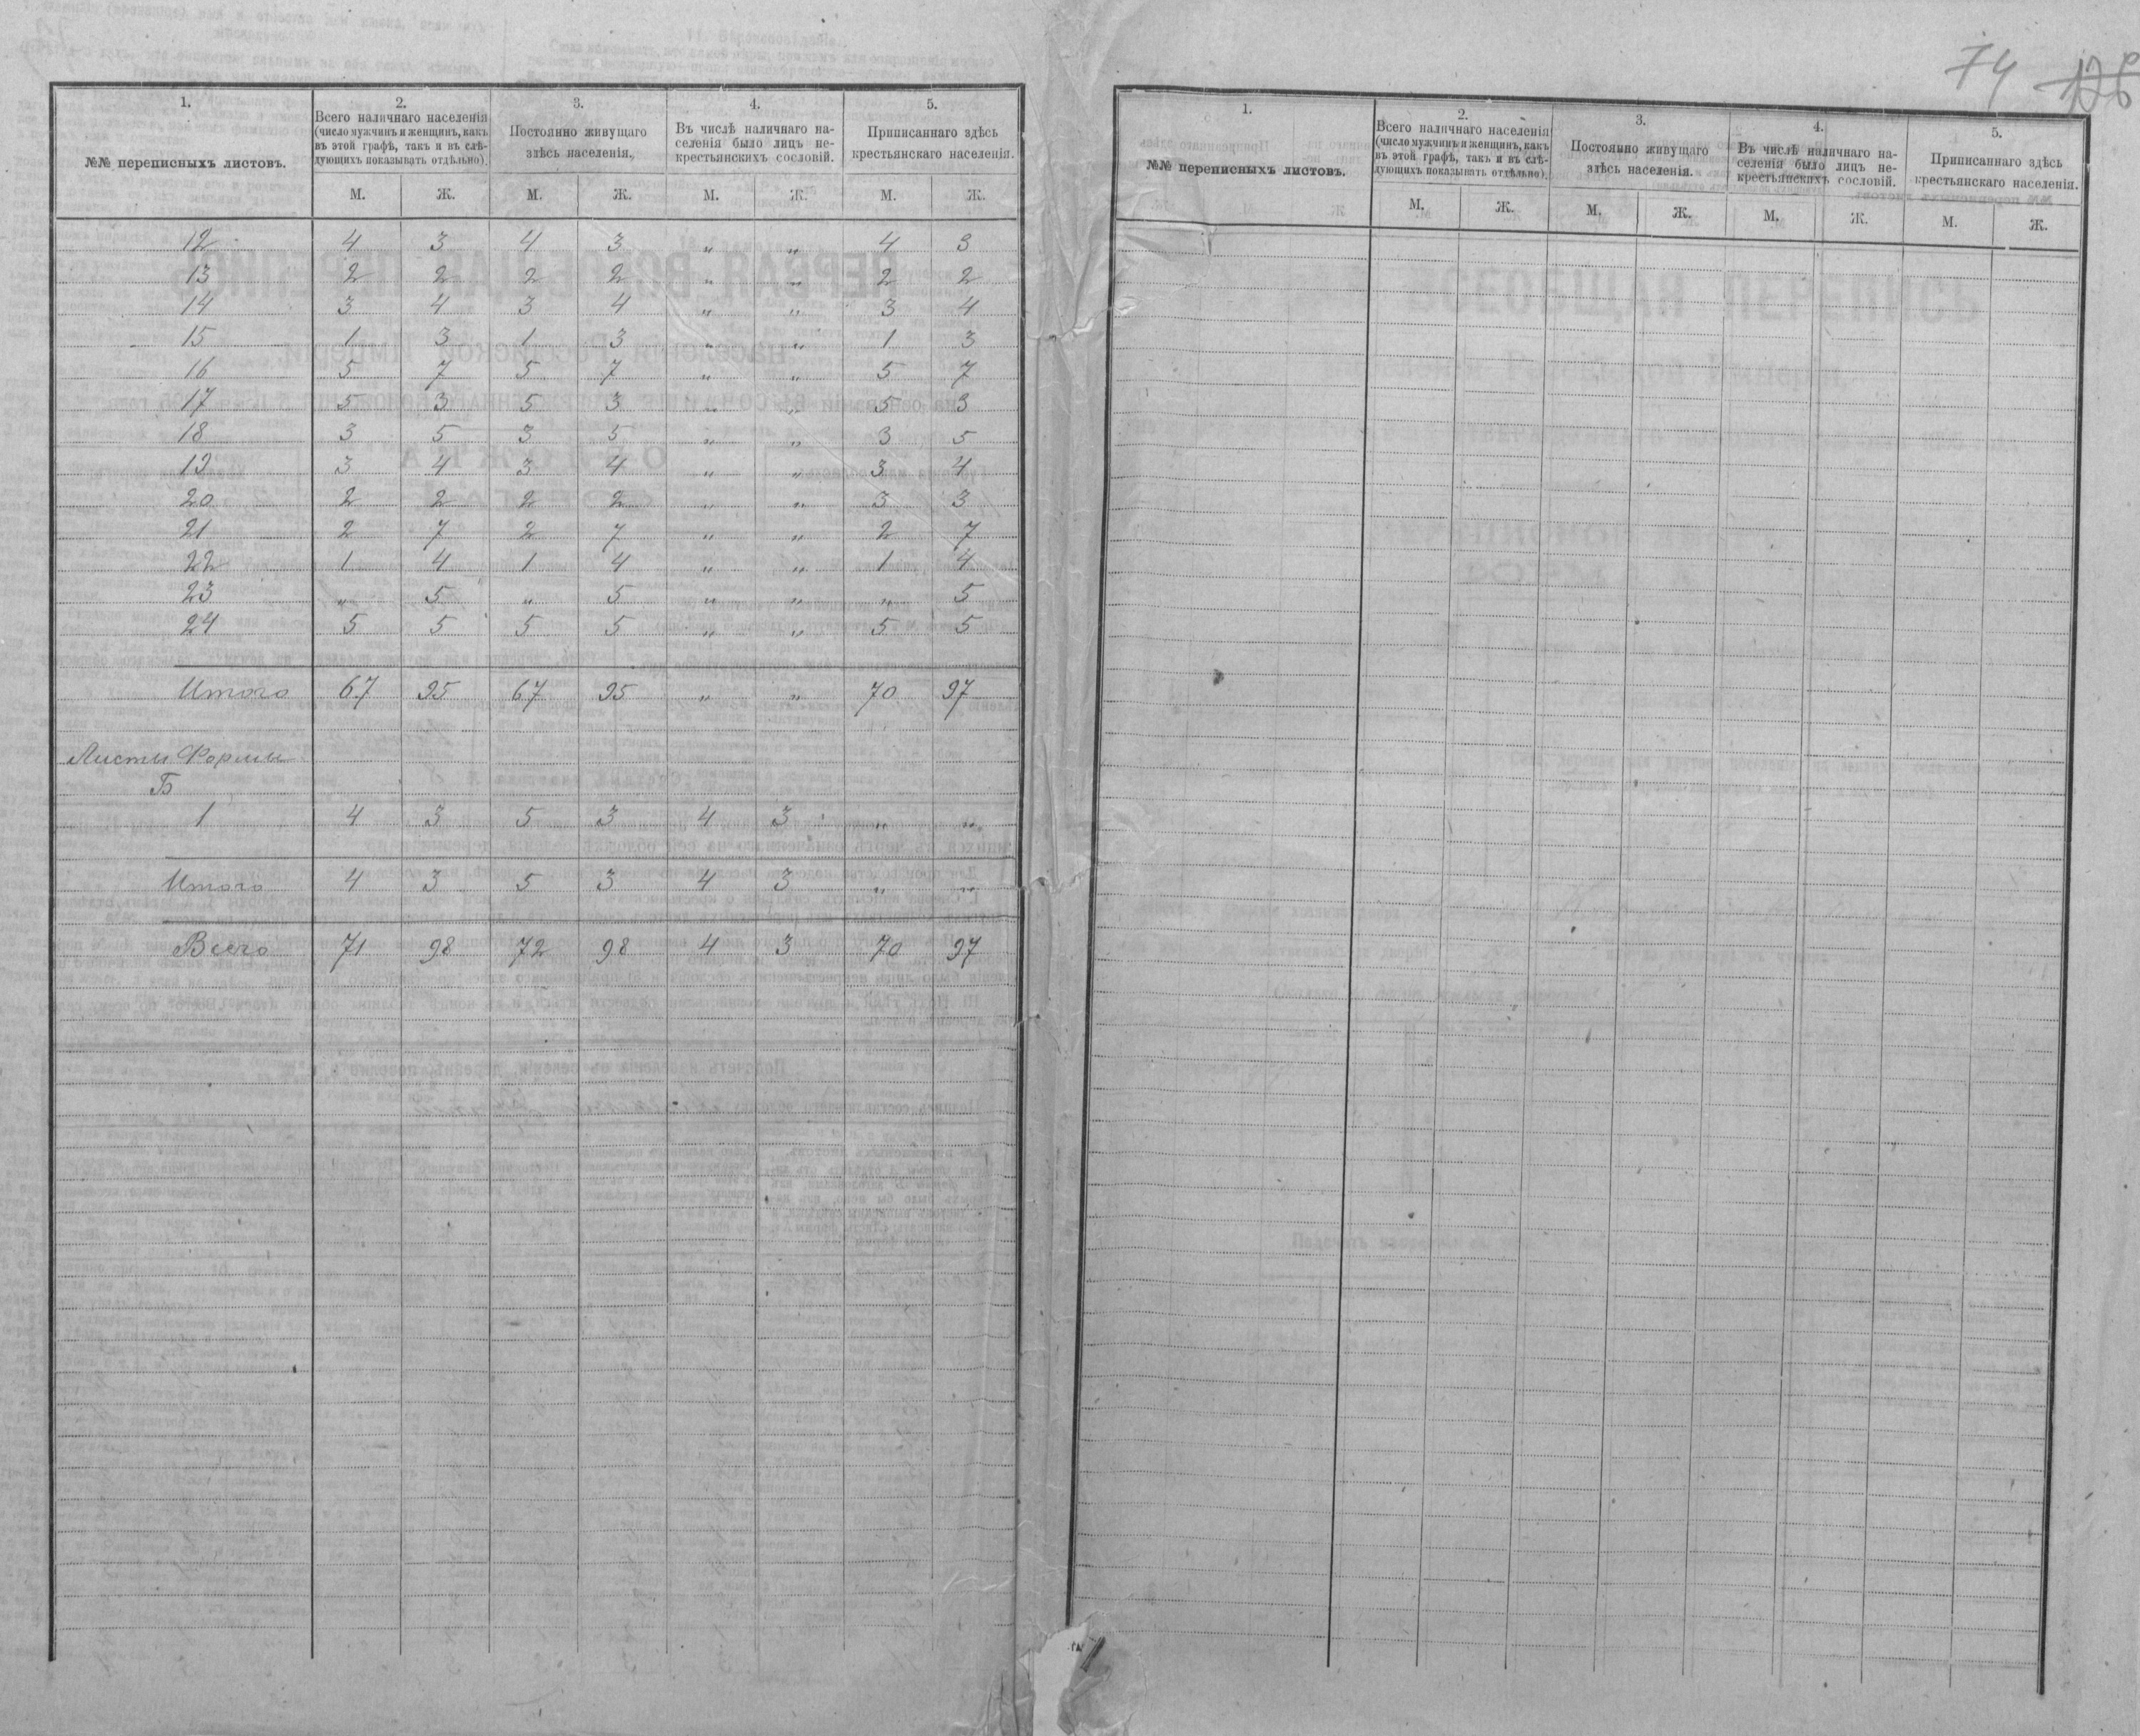 74 126
1. 2. 3. 4. 5.
№№ переписныхъ листовъ.
Всего наличнаго населенія
(число мужчинъ и женщинъ, какъ
въ этой графѣ, такъ и въ слѣ-
дующихъ показывать отдѣльно).
Постоянно живущаго
здѣсь населенія.
Въ числѣ наличнаго на-
селенія было лицъ не-
крестьянскихъ сословій.
Приписаннаго здѣсь
крестьянскаго населенія.
М. Ж. М. Ж. М. Ж. М. Ж.
12 4 3 4 3 „ „ 4 3
13 2 2 2 2 „ „ 2 2
14 3 4 3 4 „ „ 3 4
15 1 3 1 3 „ „ 1 3
16 5 7 5 7 „ „ 5 7
17 5 3 5 3 „ „ 5 3
18 3 5 3 5 „ „ 3 5
19 3 4 3 4 „ „ 3 4
20 2 2 2 2 „ „ 3 3
21 2 7 2 7 „ „ 2 7
22 1 4 1 4 „ „ 1 4
23 „ 5 „ 5 „ „ „ 5
24 5 5 5 5 „ „ 5 5
Итого 67 95 67 95 „ „ 70 97
Листы Формы
Б
1 4 3 5 3 4 3 „ „
Итого 4 3 5 3 4 3 „ „
Всего 71 98 72 98 4 3 70 97
1. 2. 3. 4. 5.
№№ переписныхъ листовъ.
Всего наличнаго населенія
(число мужчинъ и женщинъ, какъ
въ этой графѣ, такъ и въ слѣ-
дующихъ показывать отдѣльно).
Постоянно живущаго
здѣсь населенія.
Въ числѣ наличнаго на-
селенія было лицъ не-
крестьянскихъ сословій.
Приписаннаго здѣсь
крестьянскаго населенія.
М. Ж. М. Ж. М. Ж. М. Ж.